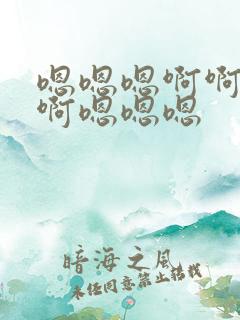 嗯嗯嗯啊啊
啊嗯嗯嗯
暗海之风
未经同意禁止转载